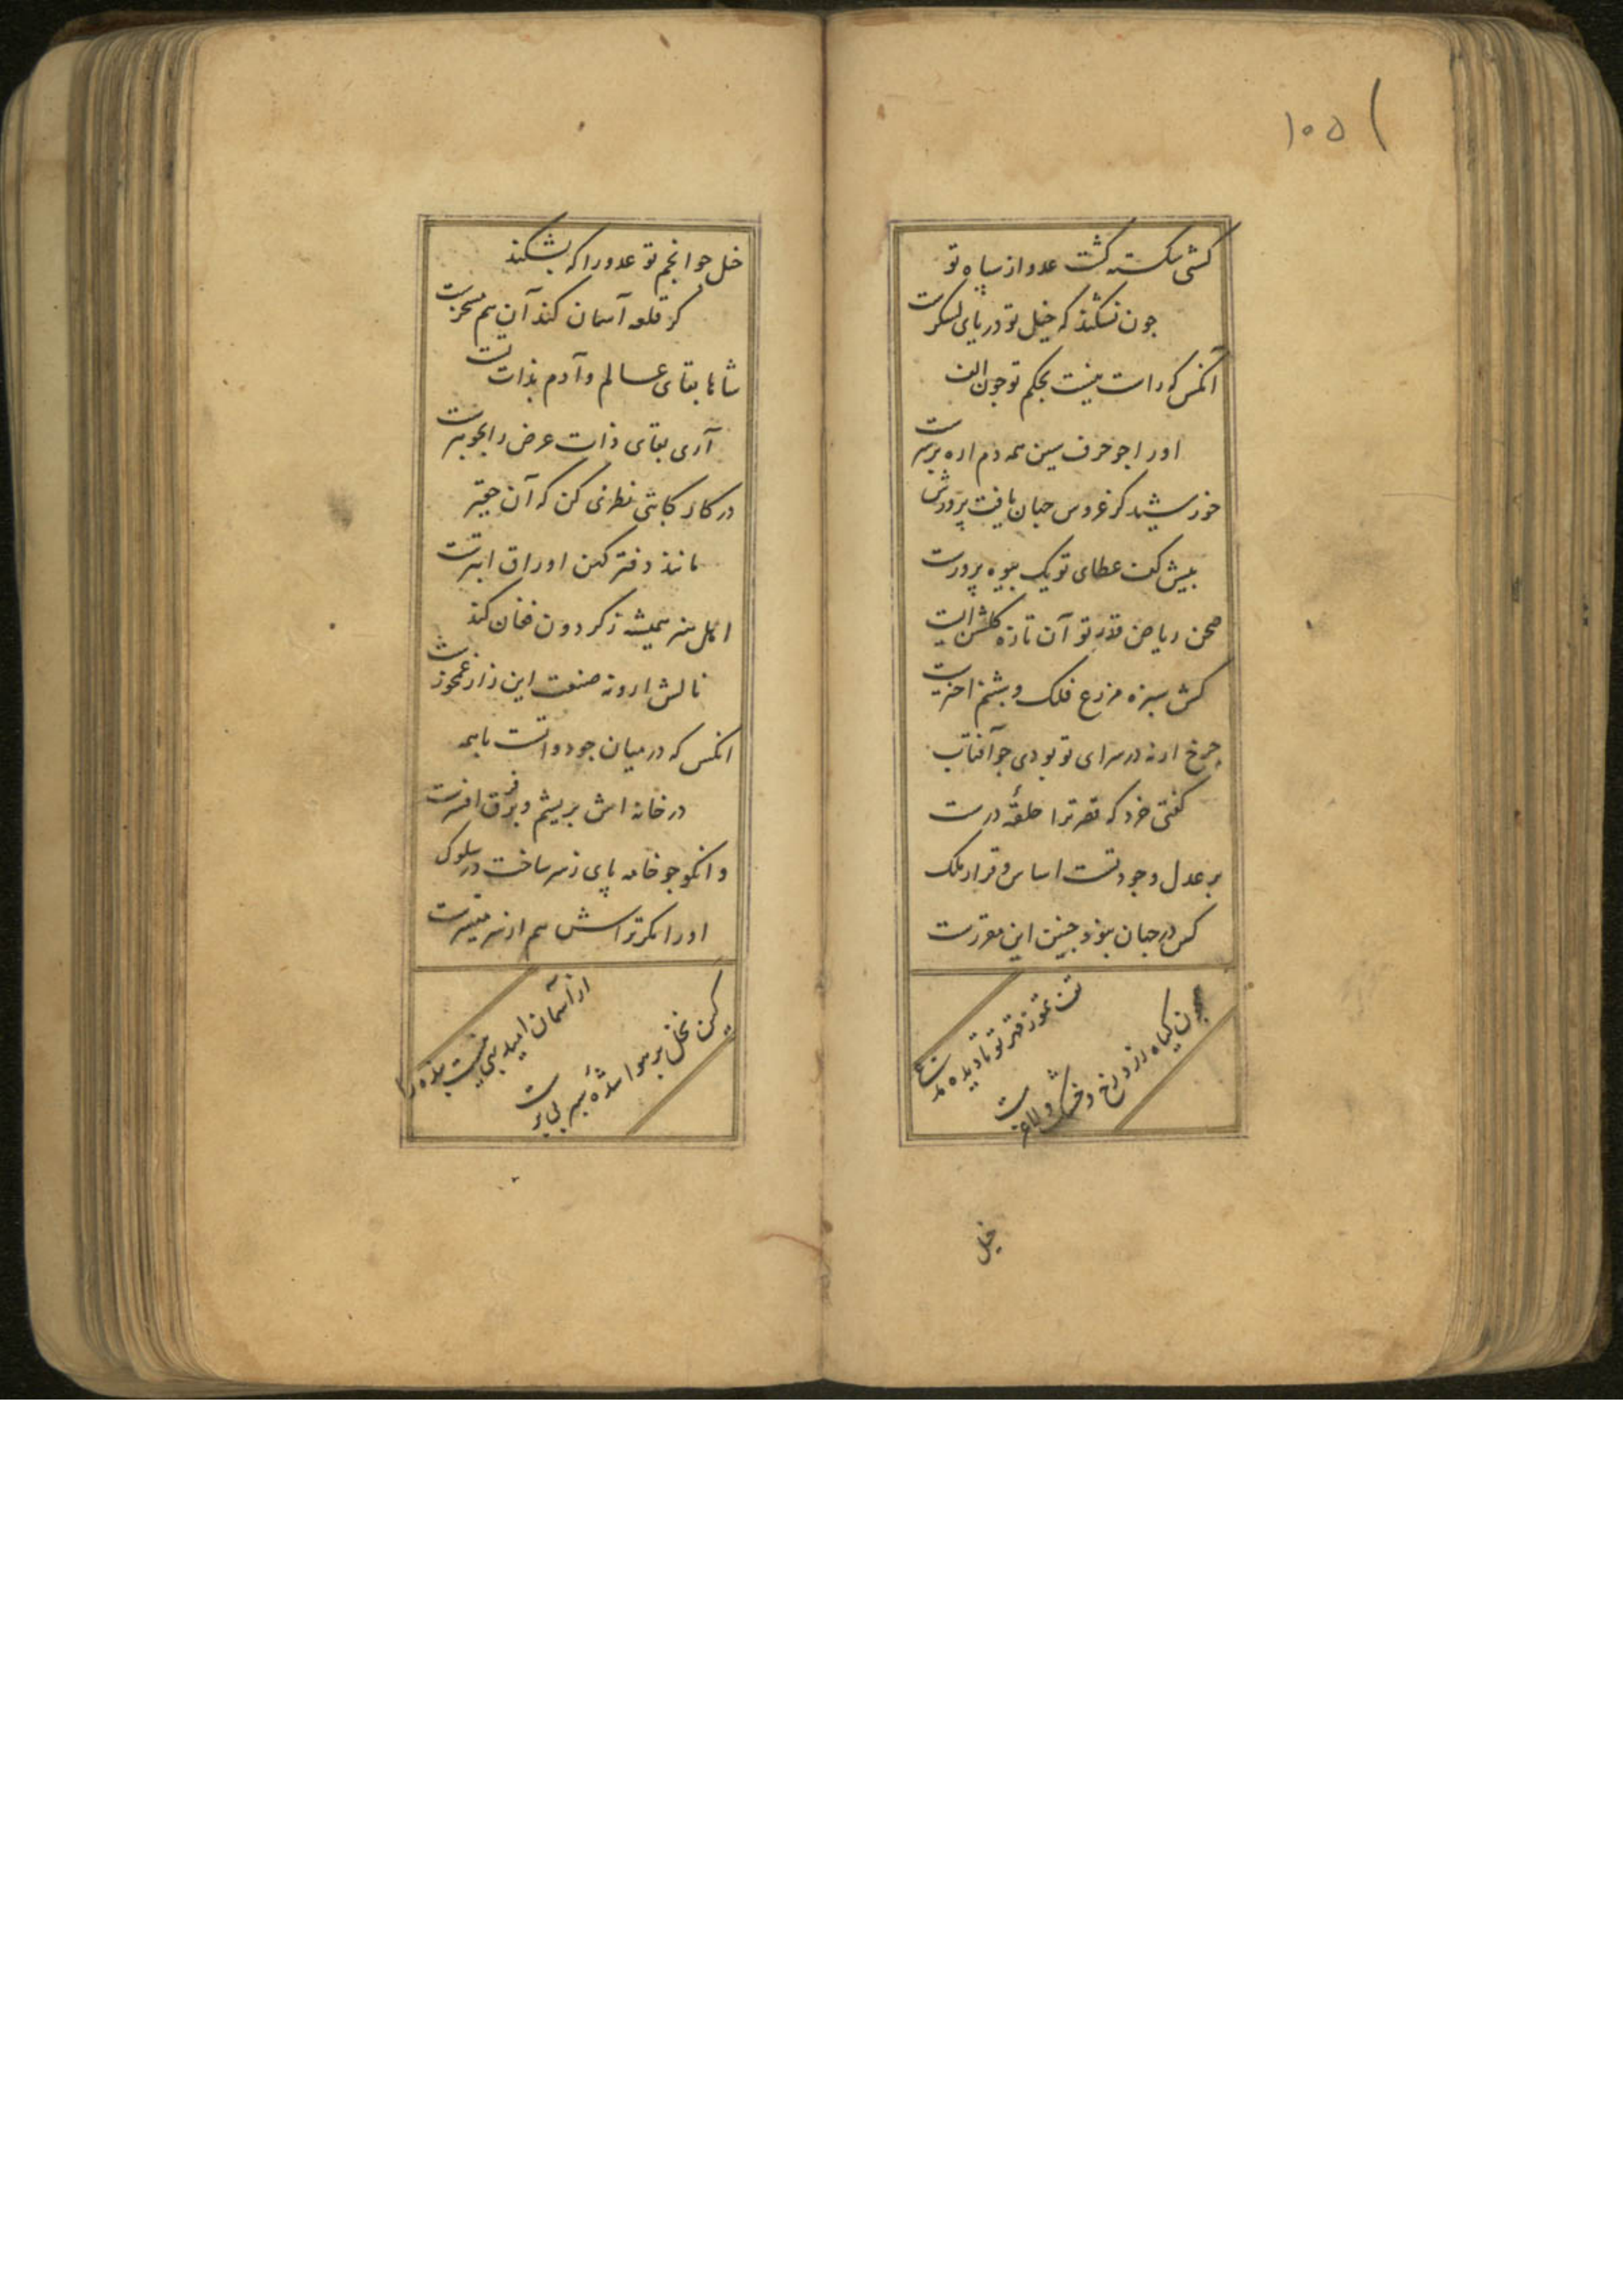 ۱۰۵
کشتی شکسته گشت عدو از سپاه تو
جون نشکند که خیل تو دریای لشکرست
آنکس که راست نیست بحکم تو جون الف
اورا جو حرف سین همه دم اره برسرست
خورشید کز عروس جهان یافت پرورش
بیش کف عطای تو یک بیوه پرورست
صحن ریاض قدر تو آن تازه کلشن است
کش سبزه مزرع فلک و شبنم اخترست
جرخ ارنه در سرای تو بودی جو آفتاب
کفتی خرد که قصر ترا حلقهٔ درست
بر عدل وجود تست اساس و قرار ملک
کس در جهان نبود جنین این مقررست
تف تموز قهر تو نادیده مدعی
همجون کیاه زرد رخ و خشک و لاغرست
خیل
خیل جو انجم تو عدو را که بشکند
کر قلعه آسمان کند آن هم مسخرست
شاها بقای عالم و آدم بذات تست
آری بقای ذات عرض را بجوهرست
در کار کاتبی نظری کن که آن حقیر
مانند دفتر کهن اوراق ابترست
اهل هنر همیشه ز کردون فغان کند
نالش ازو نه صنعت این زار غمخورست
انکس که در میان جو دواتست با همه
در خانه اش بریشم و بر فرق افسرست
وانکو جو خامه پای ز سر ساخت در سلوک
اورا مکر تراشش هم از سر میسرست
از آسمان امید بهی نیست بنده را
کین نخل بر هوا شدهٔ سبز بی برست